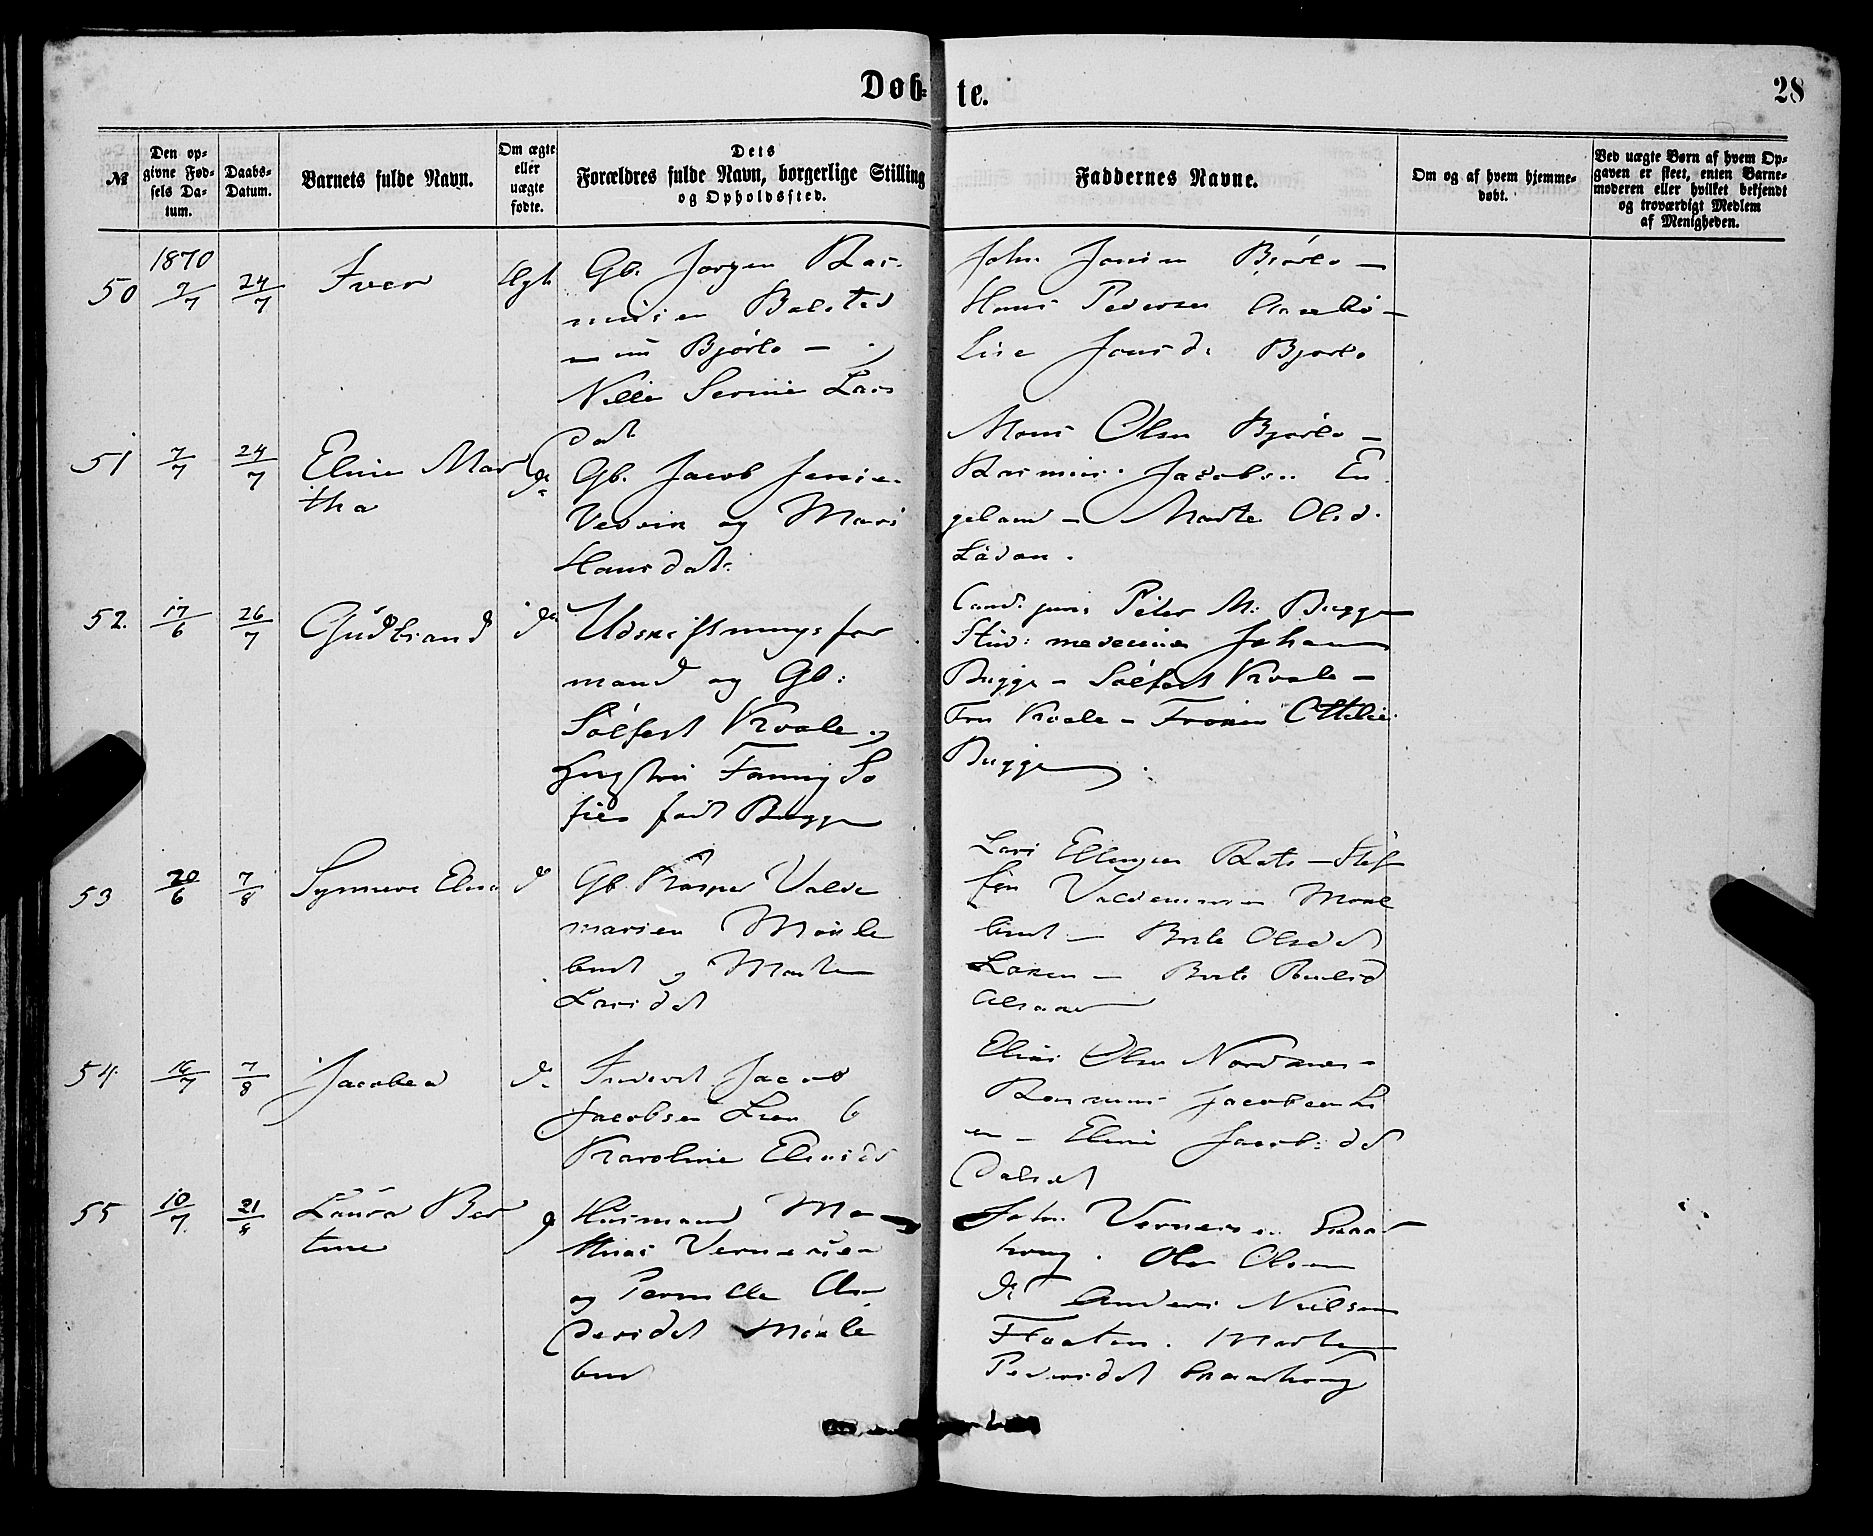 Døb-
te.
28
№
Den op-
givne Fød-
sels Da-
tum.
Daabs-
Datum.
Barnets fulde Navn.
Om ægte
eller
uægte
fødte.
Dets
Forældres fulde Navn, borgerlige Stilling
og Opholdssted.
Faddernes Navne.
Om og af hvem hjemme-
døbt.
Ved uægte Børn af hvem Op-
gaven er skeet, enten Barne-
moderen eller hvilket bekjendt
og troværdigt Medlem
af Menigheden.
1870
50
7/7
24/7
Iver
Ægt
Gb. Jørgen Ras-
musen Balsted
nu Bjørlo -
Nille Serine Lars
dat
John Jonsen Bjørlo -
Hans Pedersen
Lise Jonsd. Bjørlo
51
7/7
24/7
Eline Mar
tha
do
Gb. Jacob Jensen
Vedvik og Mari
Hansdat:
Mons Olsen Bjørlo -
Rasmus Jacobsen En
geland - Marte Olsd.
52.
17/6
26/7
Gudbrand
do
Udskiftningsfor
mand og Gb:
Sølfest Kvale og
Hustru Fanny So
fie født Bugge
Cand: juris Peter M: Bugge
Stud: medecine Johan
Bugge - Sølfest Kvale -
Fru Kvale - Frøken Ottilie
Bugge
53
20/6
7/8
Synneve Elisa
do
Gb. Kasper Valde
marsen Moxle
bust og Marte
Larsdat
Lars Ellingsen - Stef
fen Valdemarsen Moxle
bust - Brite Olsdat
- Brite
54.
16/7
7/8
Jacobea
do
Inderst Jacob
Jacobsen Lien &
Karoline Eliasd
Elias Olsen Nordnes -
Rasmus Jacobsen Li
en - Eline Jacobsdt
Dalset
55
10/7
21/8
Laura Ber
tine
do
Husmand Ma-
thias Vernersen
og Pernille An
dersdat Moxle
bust
John Vernersen
Ole Olsen
do Anders Nielsen
Floeten. Marte
Pedersdat